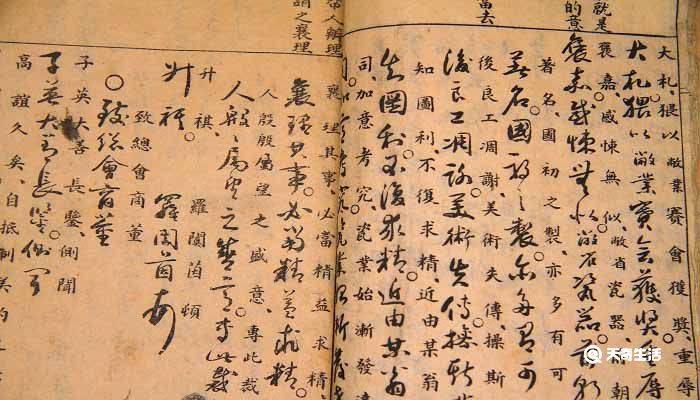 就是
的意
當去
大札。猥以敝業賽會獲獎。重辱
大札猥以敝業賽會獲獎重辱
褒嘉。感悚無似。敝省瓷器。前朝
褒嘉感悚無似敝省瓷器前朝
著名。國初之製。亦多有可
著名國初之製亦多有可
後良工凋謝。美術失傳。操斯
後良工凋謝美術失傳操斯
知圖利。不復求精。近由某翁
知圖利不復求精近由某翁
司。加意考究。瓷業始漸發達
人辦理
謂之襄理
襄理其事。必當精益求精
襄理其事必當精益求精
人殷殷屬望之盛意。專此裁
人殷殷屬望之盛意專此裁
升祺 羅闓茵頓
升祺 羅闓茵頓
致總會商董
致總會商董
子英大善長鑒。側聞
子英大善長鑒側聞
高誼久矣。自抵制美約
天奇生活